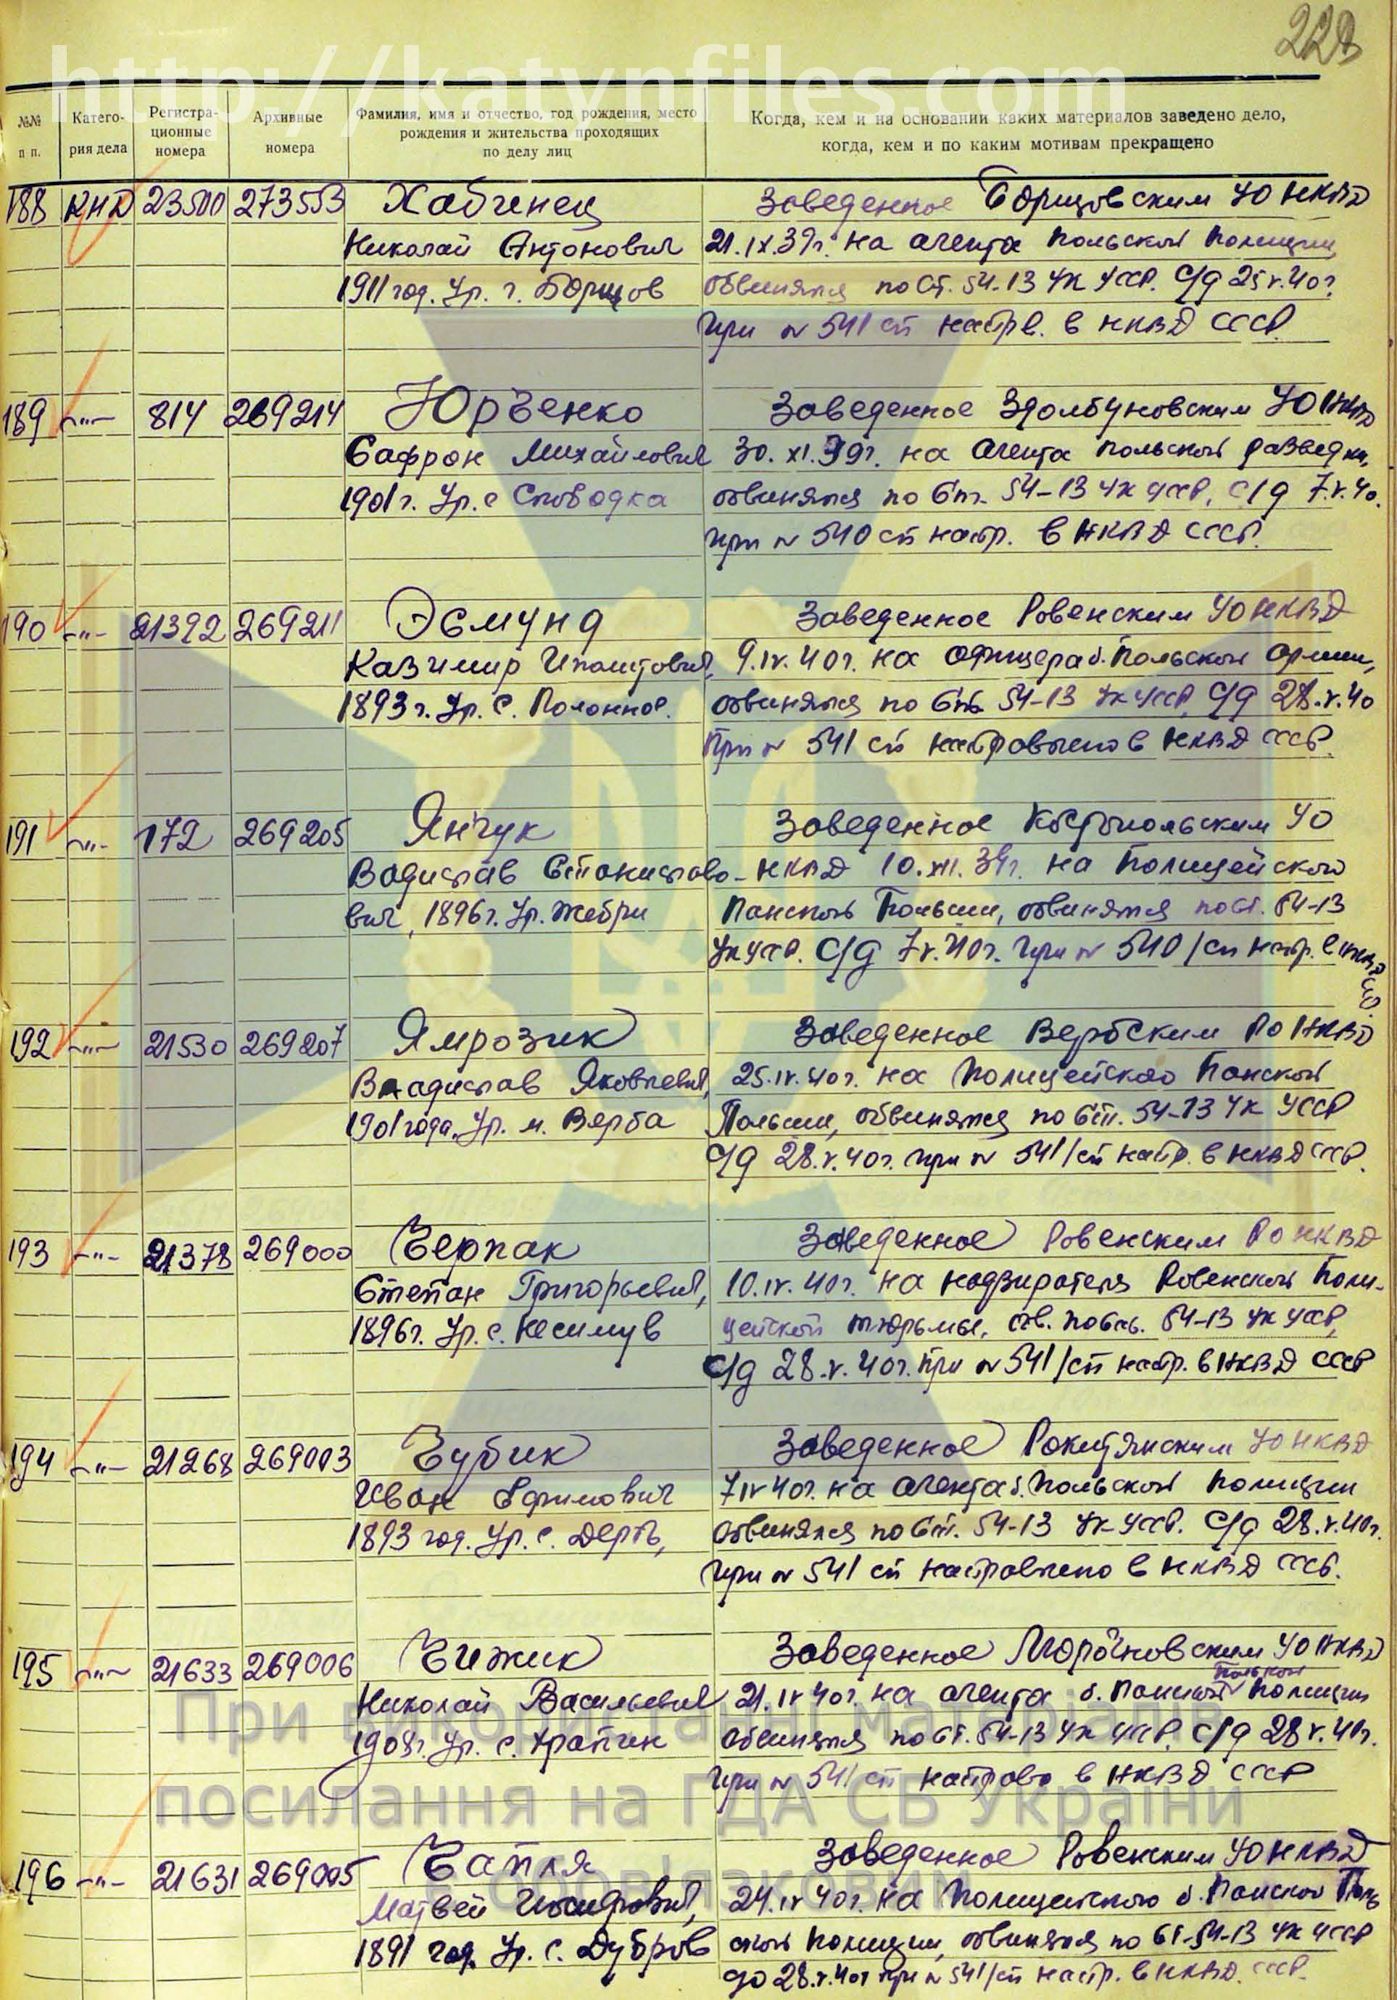 223
http://katynfiles.com
№№ п п.
Катего- рия дела
Регистра- ционные номера
Архивные номера
Фамилия, имя и отчество, год рождения, место рождения и жительства проходящих по делу лиц
Когда, кем и на основании каких материалов заведено дело, когда, кем и по каким мотивам прекращено
188 КНД 23500 273553 Хабинец Заведенное Борщовским УО НКВД
Николай Антонович 21.IX.39г. на агента польской полиции,
1911 год. Ур. г. Борщов обвинялся по ст. 54-13 УК УССР. С/д 25.V.40г.
при № 541 сп напрв. в НКВД СССР.
189 —"— 814 269214 Юрченко Заведенное Здолбуновским УО НКВД
Сафрон Михайлович 30.XI.39г. на агента польской разведки,
1901г. Ур. с Слободка обвинялся по Ст. 54-13 УК УССР, с/д 7.V.40.
при № 540 сп напр. в НКВД СССР.
190 —"— 21392 269211 Эсмунд Заведенное Ровенским УО НКВД
Казимир Иполитович, 9.IV.40г. на офицера б. Польской Армии,
1893г. Ур. С. Полонное. обвинялся по Ст. 54-13 УК УССР, С/д 28.V.40
При № 541 сп направлено в НКВД СССР.
191 —"— 172 269205 Янчук Заведенное Костопольским УО
Водислав Станиславо- НКВД 10.XII.39г. на Полицейского
вич, 1896г. Ур. Жебри Панской Польши, обвинялся по ст. 54-13
УК УССР. С/д 7.V.40г. при № 540/сп напр. в НКВД
СССР.
192 —"— 21530 269207 Ямрозик Заведенное Вербским РО НКВД
Владислав Яковлевич, 25.IV.40г. на Полицейского Панской
1901 года. Ур. м. Верба Польши, обвинялся по Ст. 54-13 УК УССР
С/д 28.V.40г. при № 541/сп напр. в НКВД СССР.
193 —"— 21378 269000 Черпак Заведенное Ровенским РО НКВД
Степан Григорьевич, 10.IV.40г. на надзирателя Ровенской Поли-
1896г. Ур. с. цейской тюрьмы, по 54-13 УК УССР,
С/д 28.V.40г. при № 541/сп напр. в НКВД СССР
194 —"— 21268 269003 Чубик Заведенное Рокитянским УО НКВД
Иван Ефимович 7 IV 40г. на агента б. Польской Полиции
1893 год. Ур. с. Дерть, обвинялся по Ст. 54-13 УК УССР. С/д 28.V.40г.
при № 541 сп направлено в НКВД СССР.
195 —"— 21633 269006 Чижик Заведенное Морочновским УО НКВД
польской
Николай Васильевич 21.IV 40г. на агента б. Панской полиции
Ур. с. Храпин обвинялся по ст. 54-13 УК УССР, С/д 28 V.40г.
при № 541 сп направо в НКВД СССР
196 —"— 21631 269005 Чапля Заведенное Ровенским УО НКВД
Матвей Иосифович, 24.IV 40г. на Полицейского б. Панской Поль
1891 год Ур. с. Дубров ской полиции, обвинялся по ст-54-13 УК УССР
до 28.V.40г при № 541/сп напр. в НКВД. СССР.
При використанні матеріалів
посилання на ГДА СБ України
є обов'язковим